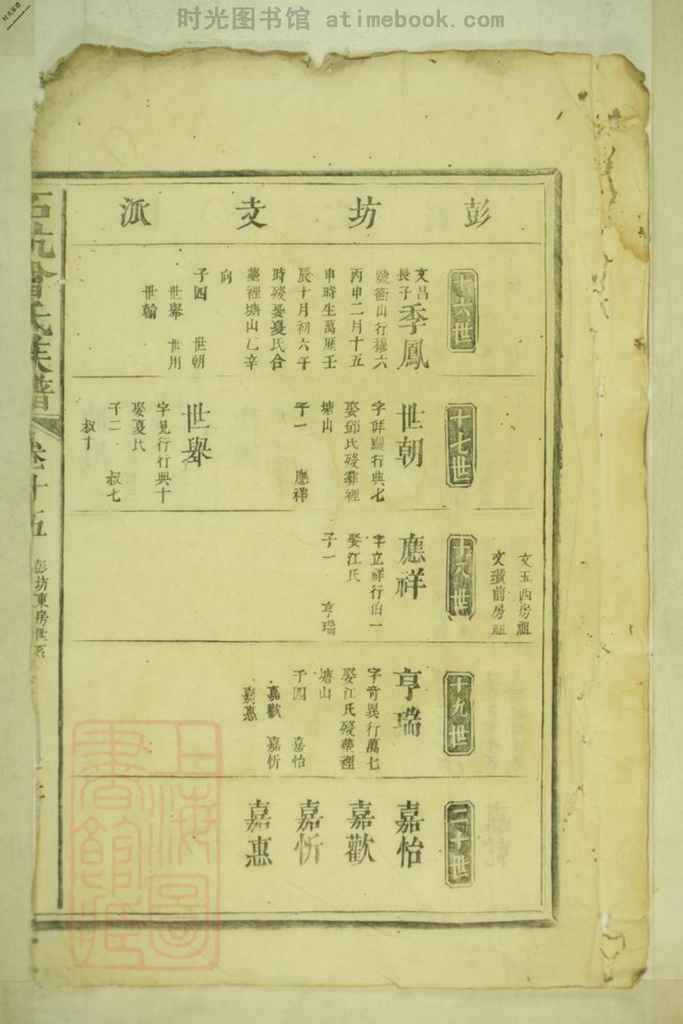 时光图书馆 atimebook.com
彭坊支派
文玉西房祖
文璜前房祖
十六世
文昌
長子
季鳳
號衡山行櫟六
丙申二月十五
申時生萬歷壬
辰十月初六午
時歿娶憂氏合
葬裡塘山乙辛
向
子四 世朝
世舉 世用
世翰
十七世
世朝
娶鄧氏歿葬裡
塘山
子一 應祥
世舉
字見行行典十
娶憂氏
子二 叔七
叔十
十八世
應祥
字立祥行伯一
娶江氏
子一 亨瑞
十九世
亨瑞
字奇異行萬七
娶江氏歿葬裡
塘山
子四 嘉怡
嘉歡 嘉忻
嘉惠
二十世
嘉怡
嘉歡
嘉忻
嘉惠
氏族譜
卷十五
彭坊東房世系
上海圖
書館